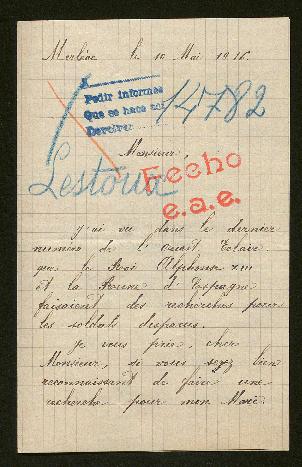 Merléac le 10 Mai 1916.
A
Pedir informes
Que se hace así
Devolver
14782
Monsieur,
Lestoux
Hecho
e.a.e.
y'ai vu dans le dernier
numéro de l'Ouest Eclair
que le Roi Alphonse XIII
et la Reine d'Espagne
faisaient des recherches pour
les soldats disparus.
Je vous prie, cher
Monsieur, si vous soyez bien
reconnaissant de faire une
recherche pour mon Mari